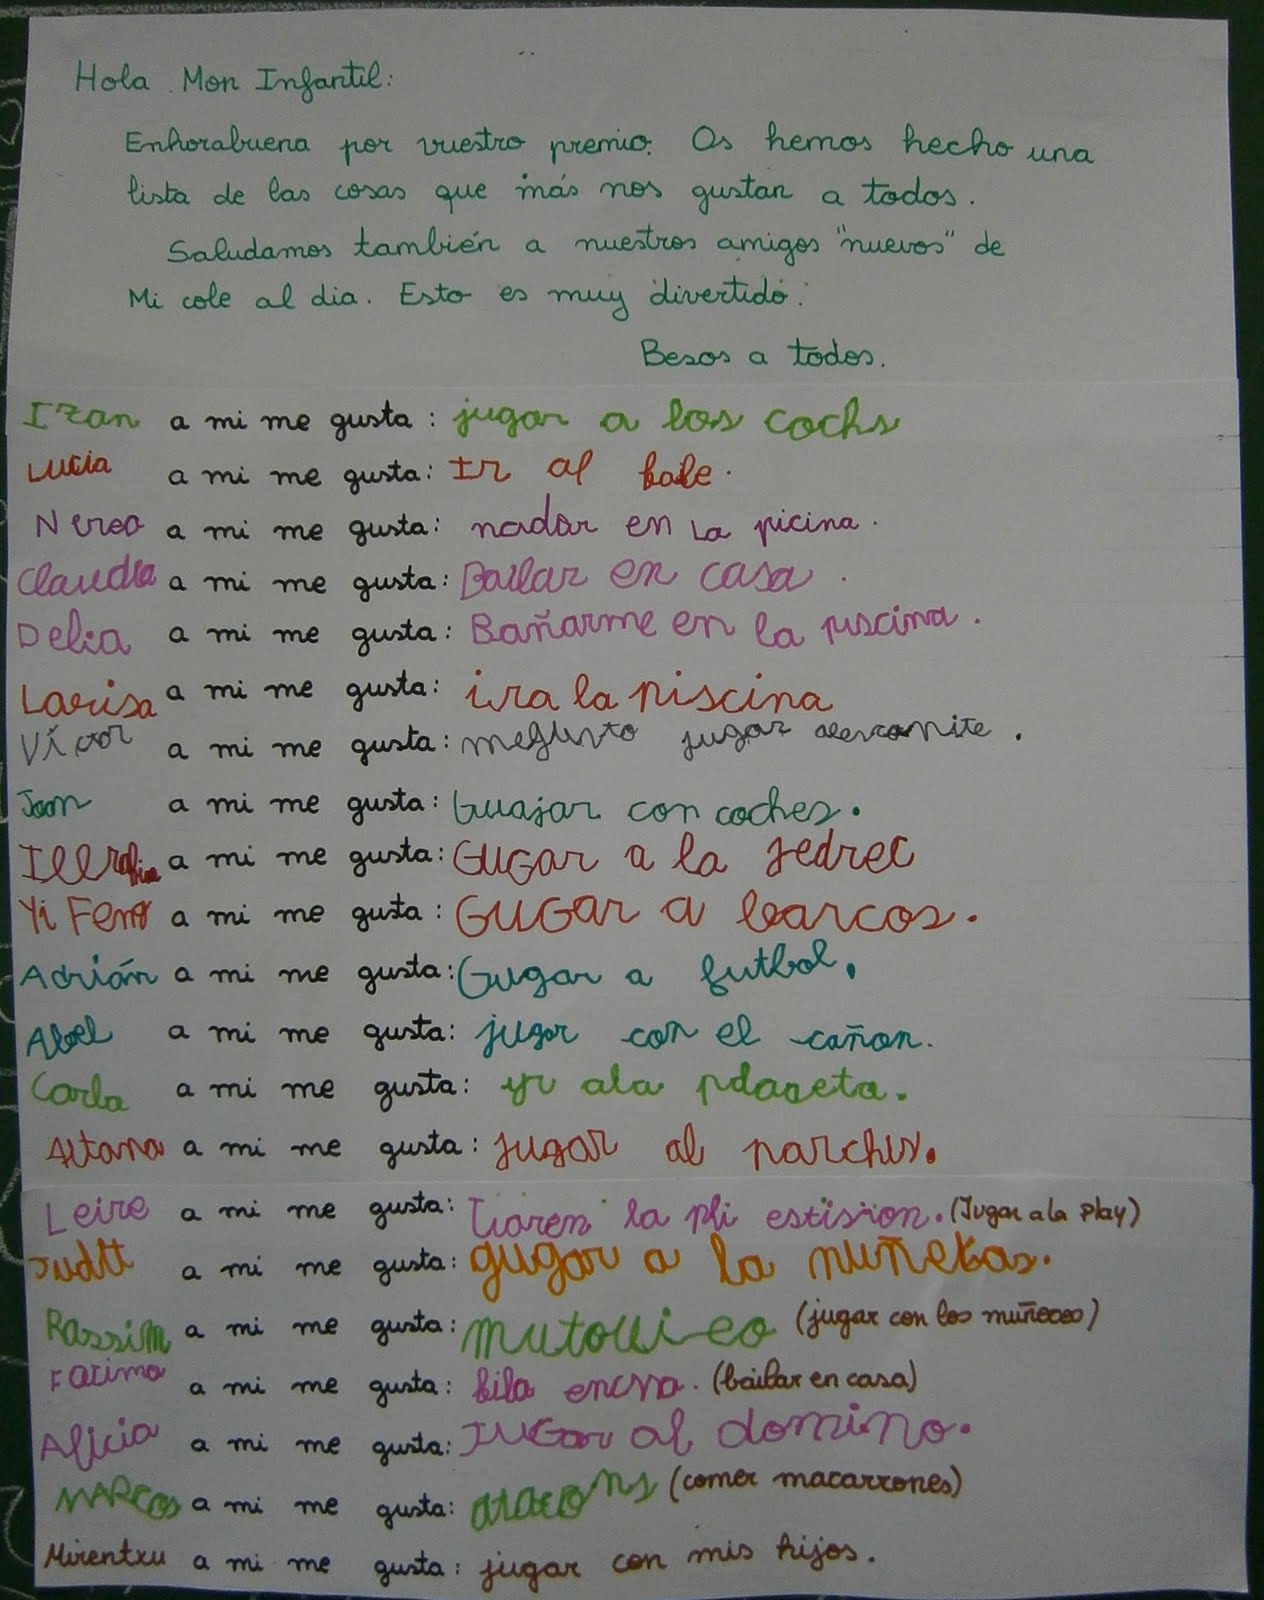 Hola Mon Infantil:
Enhorabuena por vuestro premio. Os hemos hecho una
lista de las cosas que más nos gustan a todos.
Saludamos también a nuestros amigos "nuevos" de
Mi cole al dia. Esto es muy divertido.
Besos a todos.
Izan a mi me gusta: jugar a los cochs
Lucia a mi me gusta: Ir al bale.
Nerea a mi me gusta: nadar en La picina.
Claudia a mi me gusta: Bailar en casa.
Delia a mi me gusta: Bañarme en la piscina.
Larisa a mi me gusta: ira la piscina
Víctor a mi me gusta: megusto jugar
Joan a mi me gusta: Guajar con coches.
a mi me gusta: GUGAR a la jedrec
Yi Feng a mi me gusta: GUGAR a barcos.
Adrián a mi me gusta: Gugar a futbol.
Abel a mi me gusta: jugar con el cañon.
Carla a mi me gusta: yr ala
Aitana a mi me gusta: jugar al parchis.
Leire a mi me gusta: la pli estision. (Jugar a la play)
Judit a mi me gusta: gugar a la nuñekas.
Rassim a mi me gusta: (jugar con los muñecos)
Fatima a mi me gusta: bila (bailar en casa)
Alicia a mi me gusta: JUGar al domino.
MARCOS a mi me gusta: (comer macarrones)
Mirentxu a mi me gusta: jugar con mis hijos.